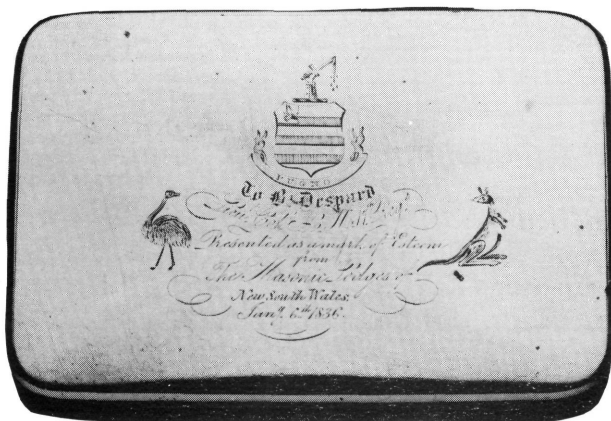 PUGNO
To B. Despard
Presented as a mark of Esteem
from
The Masonic Lodges of
New South Wales.
Jany. 6th 1836.